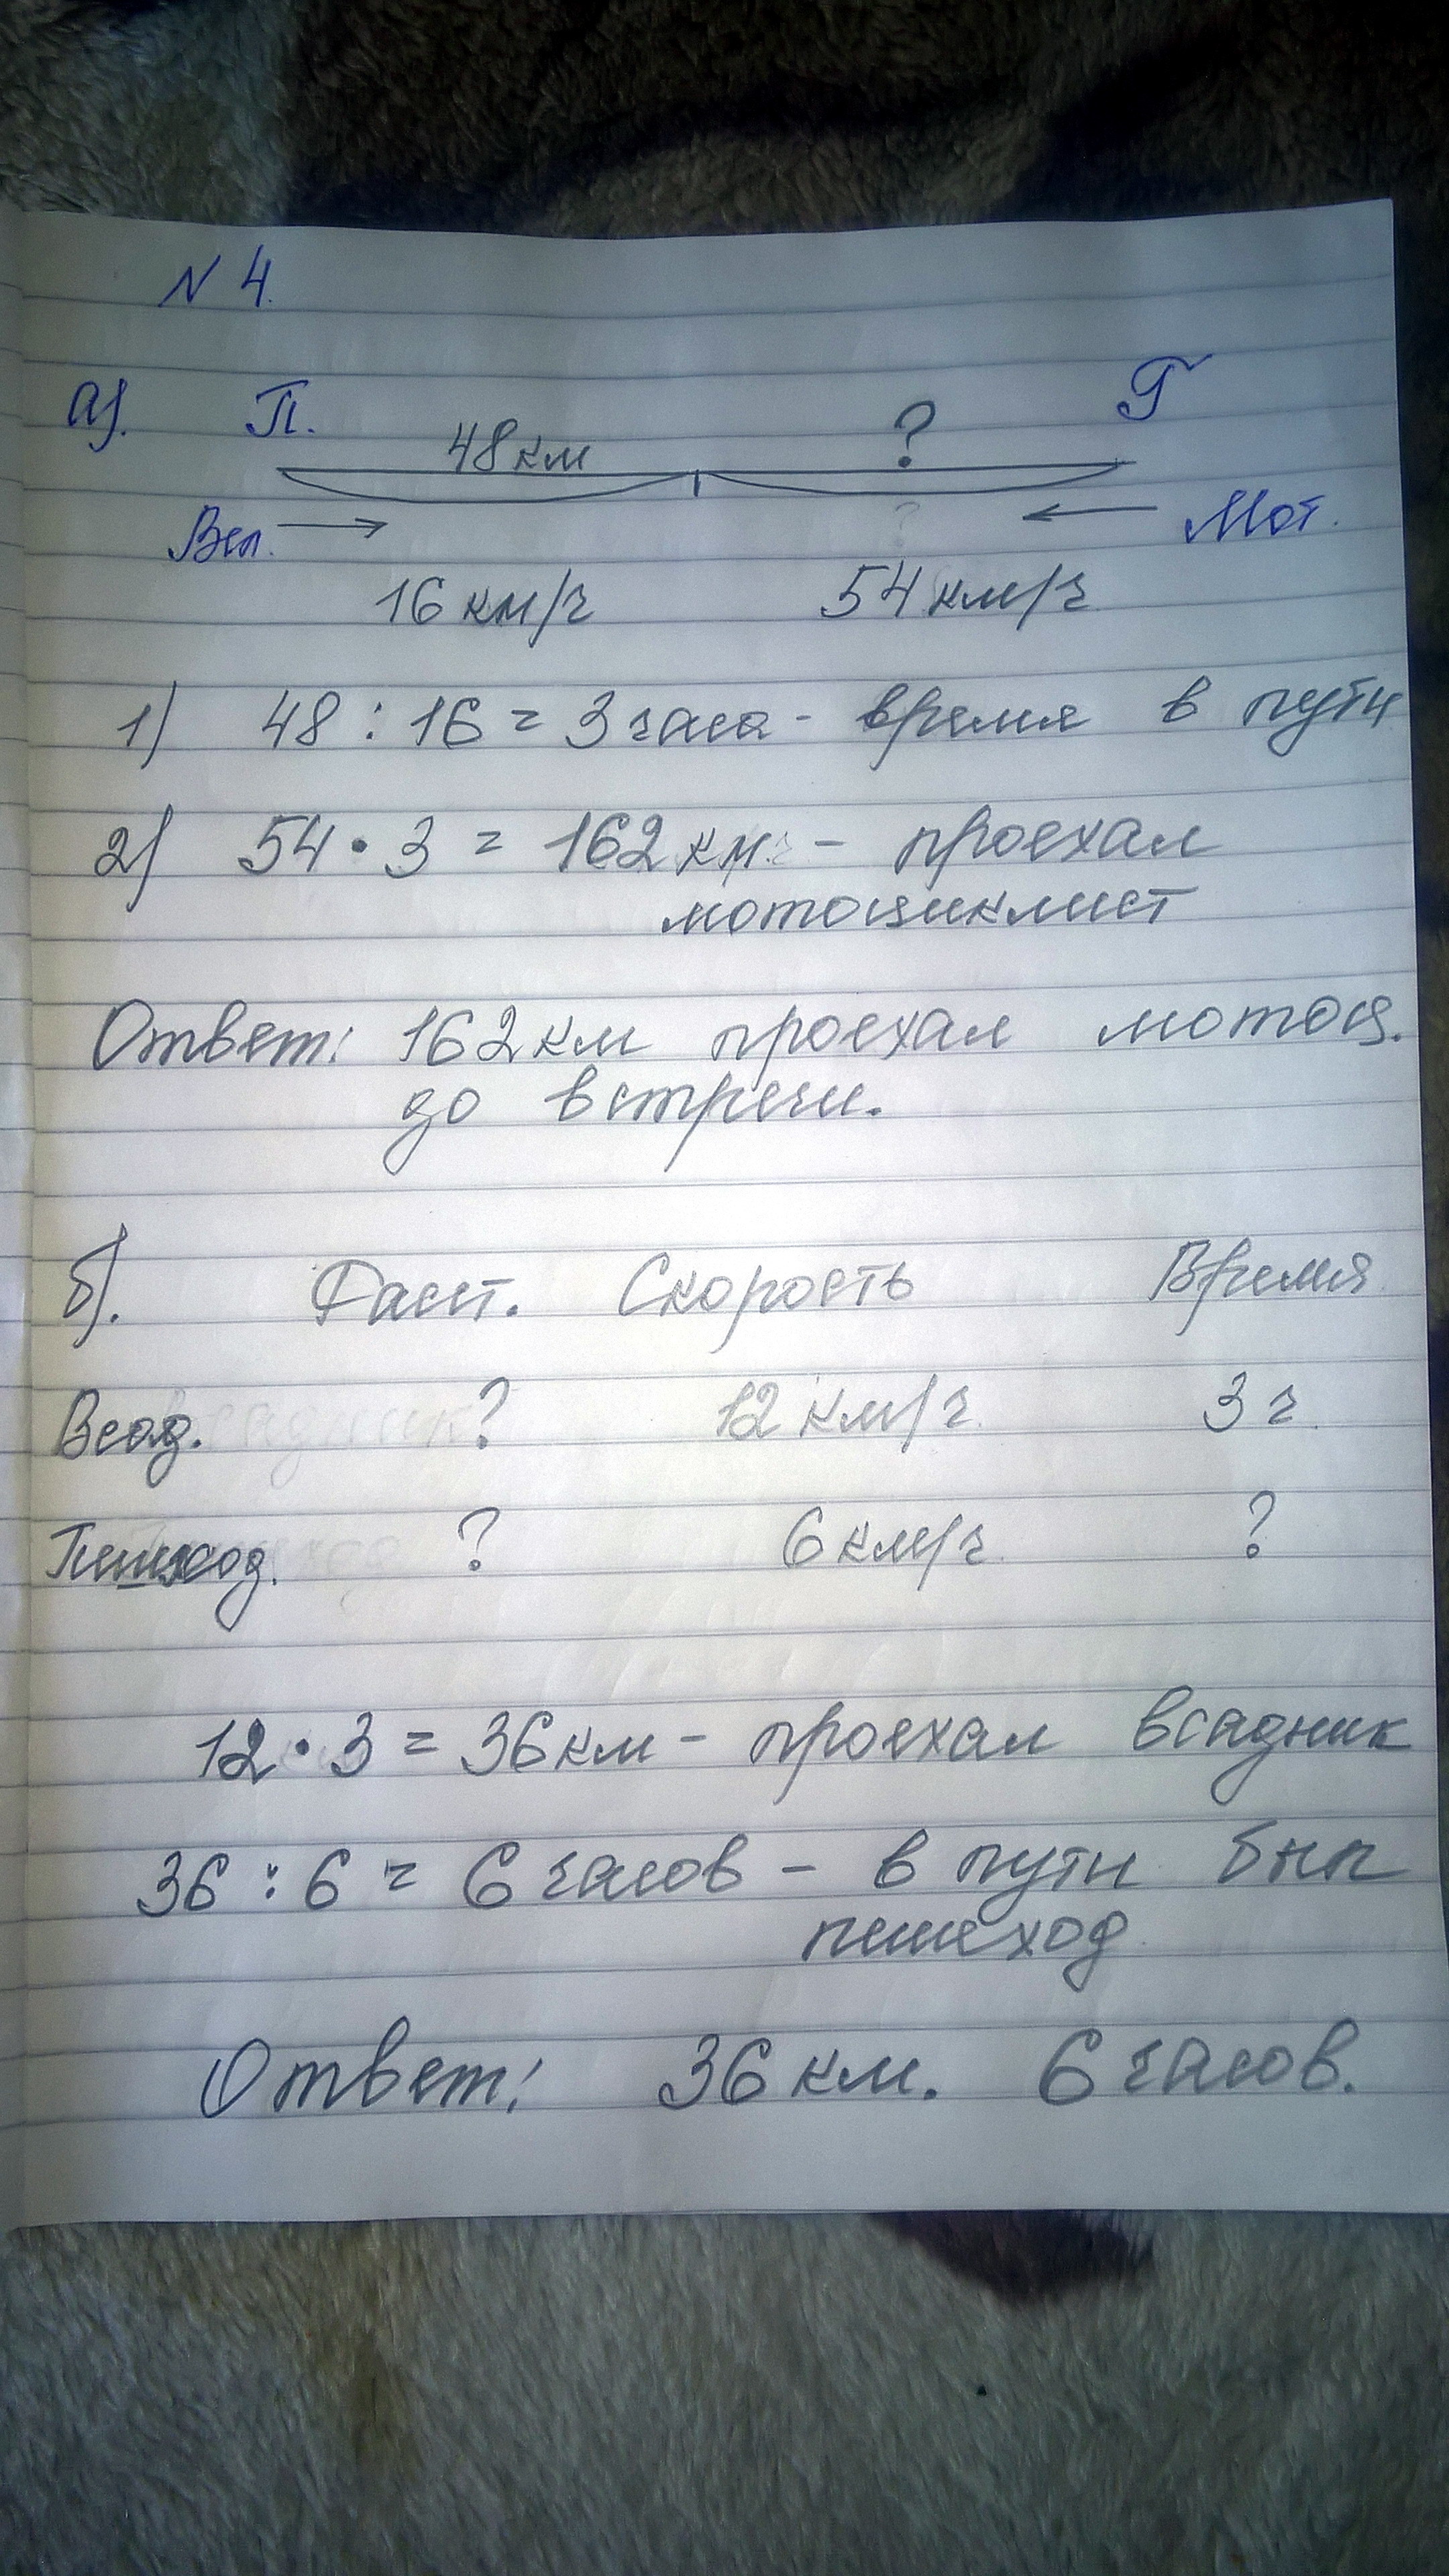 N 4.
а). П. 48 км ? Г
Вел. Мот.
16 км/ч 54 км/ч
1) 48 : 16 = 3 часа - время в пути
2) 54 · 3 = 162 км - проехал
мотоциклист
Ответ: 162 км проехал мотоц.
до встречи.
б). Расст. Скорость Время
Всад. ? 12 км/ч 3 ч.
Пешход. ? 6 км/ч. ?
12 · 3 = 36 км - проехал всадник
36 : 6 = 6 часов - в пути был
пешеход
Ответ: 36 км. 6 часов.